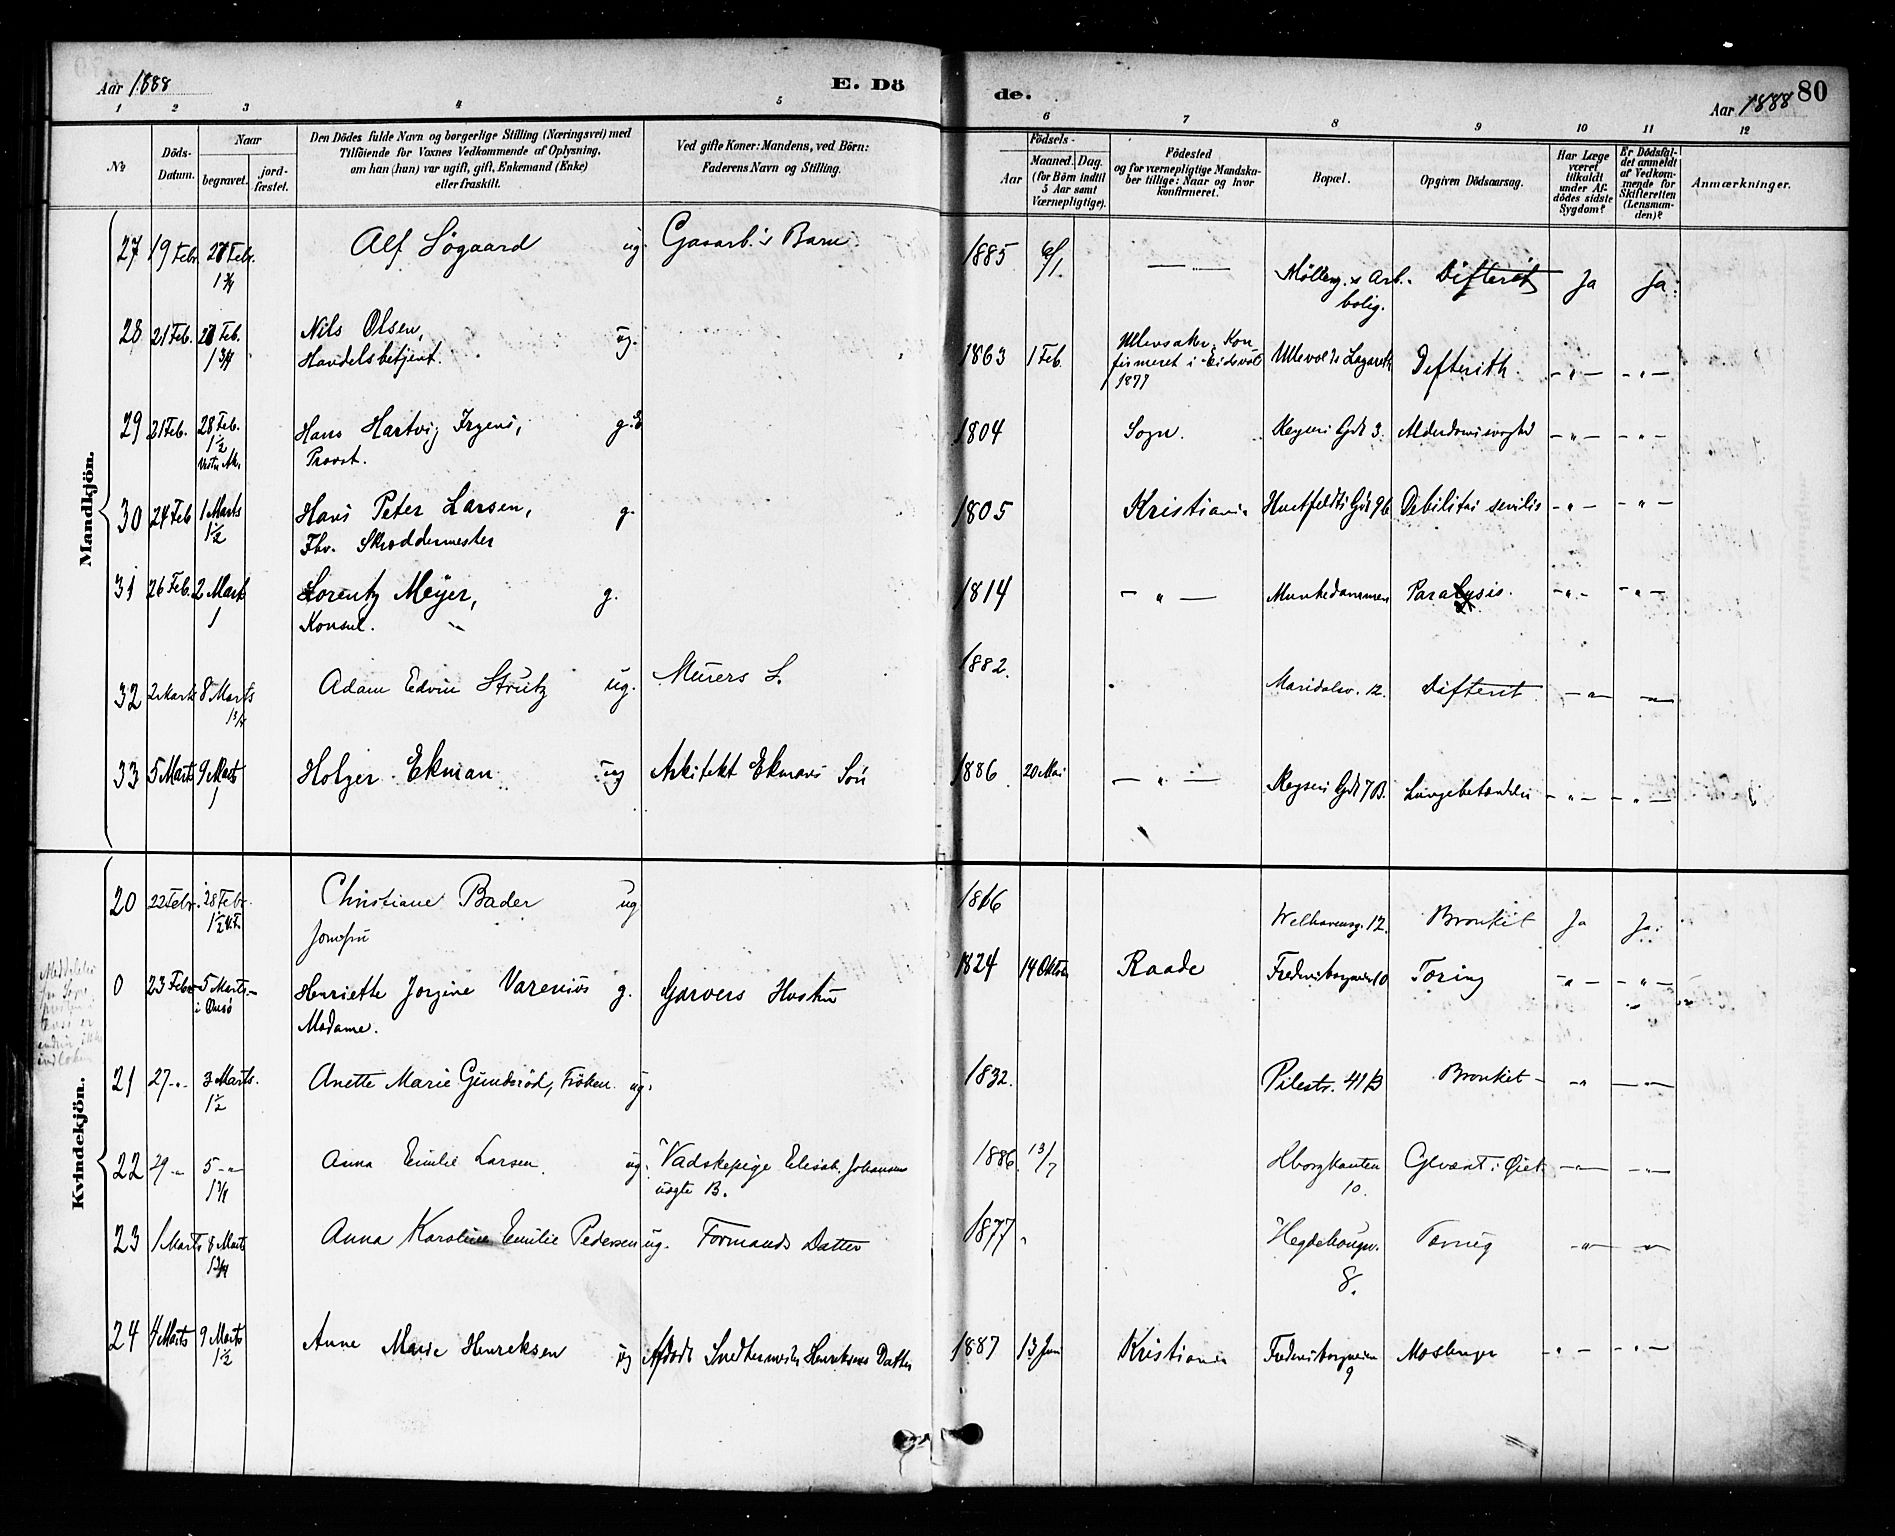 Aar 1888
E. Döde.
Aar 1888
80
1 2 3 4 5 6 7 8 9 10 11 12
No
Döds-Datum.
Naar
begravet.
jord-fæstet.
Den Dödes fulde Navn og borgerlige Stilling (Næringsvei) med
Tilföiende for Voxnes Vedkommende af Oplysning,
om han (hun) var ugift, gift, Enkemand (Enke)
eller fraskilt.
Ved gifte Koner: Mandens, ved Börn:
Faderens Navn og Stilling.
Födsels-
Aar
Maaned. Dag.
(for Börn indtil
5 Aar samt
Værnepligtige).
Födested
og for værnepligtige Mandska-
ber tillige: Naar og hvor
konfirmeret.
Bopæl.
Opgiven Dödsaarsag.
Har Læge
været
tilkaldt
under Af-
dödes sidste
Sygdom?
Er Dödsfal-
det anmeldt
af Vedkom-
mende for
Skifteretten
(Lensman-
den)?
Anmærkninger.
Mandkjön.
27 19 Febr. Febr. Alf Sögaard ug. Gasarb.'s Barn 1885 6/1 — — Mölleng.s Arb.bolig. Difterit Ja Ja.
28 21 Feb. Feb. 1 3/4 Nils Olsen, Handelsbetjent. ug. 1863 1 Feb. Ullensaker. Konfirmeret i Eidsvold 1877 Ullevolds Lazareth Difterith. — " — — " —
29 21 Feb. 28 Feb. 1 1/2 Vestre Ak. Hans Hartvig Irgens, Provst. g. 1804 Sogn. Keysers Gde 3. Alderdomssvaghed — " — — " —
30 24 Feb 1 Marts 1 1/2 Hans Peter Larsen, Fhv. Skræddermester g. 1805 Kristiania Huitfeldts Gde 96 Debilitas senilis — " — — " —
31 26 Feb. 2 Marts 1 Lorentz Meyer, Konsul. g. 1814 — " — Munkedammen Paralysis. — " — — " —
32 2 Marts 8 Marts 1 3/4 Adam Edvin Strutz ug. Murers S. 1882. Maridalsv. 12. Difterit — " — — " —
33 5 Marts 9 Marts 1 Holger Ekman ug Arkitekt Ekmans Sön 1886 20 Mai — " — Keysers Gde 7B. Lungebetændelse — " — — " —
Kvindekjön.
20 22 Febr. 28 Febr. 1 1/2 Christiane Bader Jomfru ug 1816 Welhavensg. 12. Bronkit Ja Ja.
0 23 Febr 5 Marts i Onsö Henriette Jorgine Varenius Madame. g. Garvers Hustru 1824 14 Oktbr Raade Frederiksborgveien 10 Tæring — " — — " —
21 27 — " — 3 Marts. 1 1/2 Anette Marie Gundsröd, Fröken. ug. 1832. Pilestr. 41 B Bronkit — " — — " —
22 29 — " — 5 — " — Anna Emilie Larsen. ug. Vadskepige Elisab. Johansen uægte B. 1886. 13/7 Hborgkanten 10. — " — — " —
23 1 Marts 8 Marts Anna Karoline Emilie Pedersen ug. Formands Datter 1877 Hegdehaugsv. 8. Tæring — " — — " —
24 4 Marts 9 Marts 1 1/2 Anne Marie Henreksen ug Afdöde Snedkermester Henriksens Datter 1887 13 Juni Kristiania Frederiksborgveien 9 Mæslinger — " — — " —